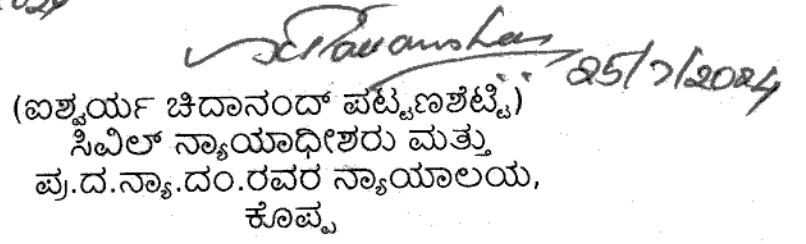 25/7/2024
(ಐಶ್ವರ್ಯ ಚಿದಾನಂದ್ ಪಟ್ಟಣಶೆಟ್ಟಿ)
ಸಿವಿಲ್ ನ್ಯಾಯಾಧೀಶರು ಮತ್ತು
ಪ್ರ.ದ.ನ್ಯಾ.ದಂ.ರವರ ನ್ಯಾಯಾಲಯ,
ಕೊಪ್ಪ